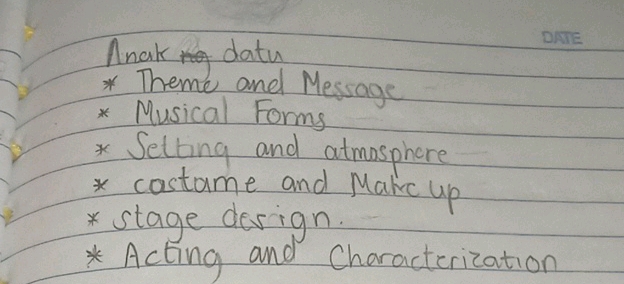 DATE
Anak ng datu
* Theme and Message
* Musical Forms
* Setting and atmosphere
* costame and Make up
* stage design.
* Acting and Characterization